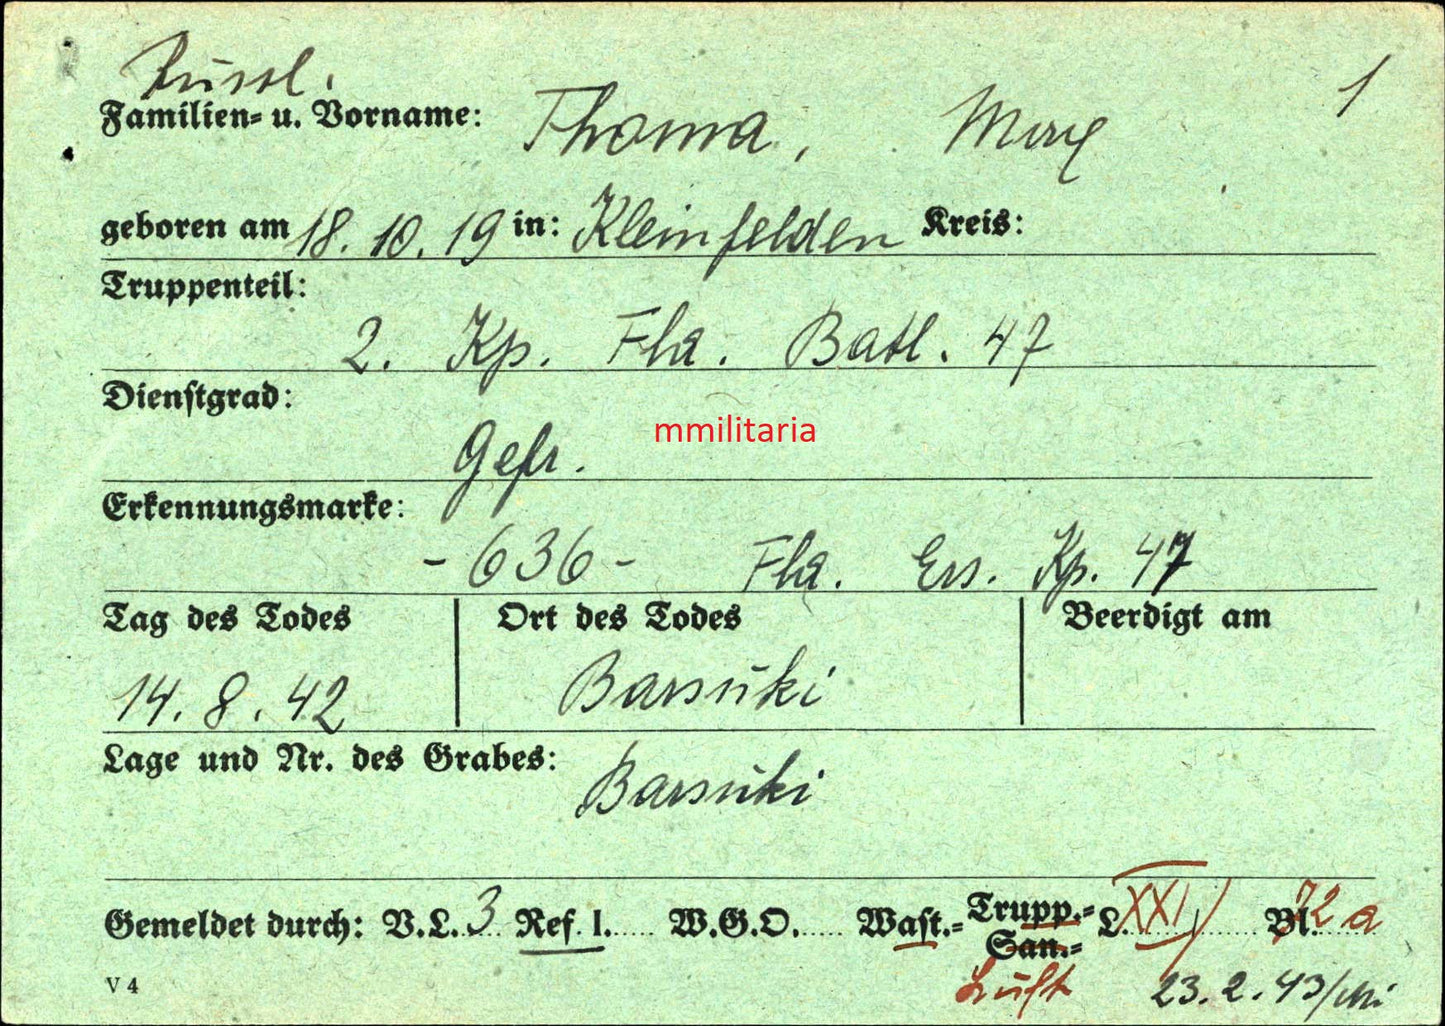 Russl. 1
Familien- u. Vorname: Thoma, Max
geboren am 18.10.19 in: Kleinfelden Kreis:
Truppenteil:
2. Kp. Fla. Batl. 47
Dienstgrad:
mmilitaria
Gefr.
Erkennungsmarke:
-636- Fla. Ers. Kp. 47
Tag des Todes Ort des Todes Beerdigt am
14.8.42 Barsuki
Lage und Nr. des Grabes: Barsuki
Gemeldet durch: V.L. 3 Ref. I. W.G.O. Wast.- Trupp.- San.- L. XXI Bl. 72 a
V 4 Luft 23.2.43/